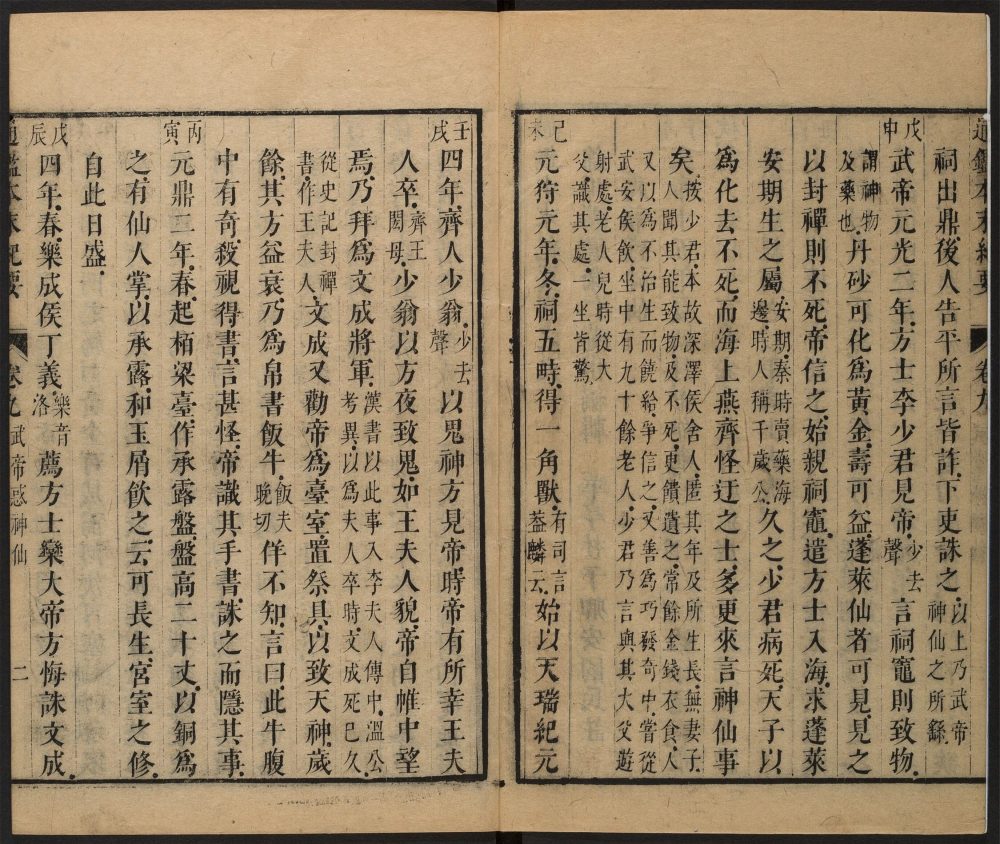 通鑑本末紀要 卷九
祠出鼎後人告平所言皆詐下吏誅之以上乃武帝神仙之所繇
戊申武帝元光二年方士李少君見帝少去聲言祠竈則致物
謂神物及藥也丹砂可化爲黃金壽可益蓬萊仙者可見見之
以封禪則不死帝信之始親祠竈遣方士入海求蓬萊
安期生之屬安期秦時賣藥海邊時人稱千歲公久之少君病死天子以
爲化去不死而海上燕齊怪迂之士多更來言神仙事
矣按少君本故深澤侯舍人匿其年及所生長無妻子人聞其能致物及不死更饋遺之常餘金錢衣食人
又以爲不治生而饒給爭信之又善爲巧發奇中嘗從武安侯飲坐中有九十餘老人少君乃言與其大父遊
射處老人兒時從大父識其處一坐皆驚
己未元狩元年冬祠五畤得一角獸有司言蓋麟云始以天瑞紀元
壬戌四年齊人少翁少去聲以鬼神方見帝時帝有所幸王夫
人卒齊王閎母少翁以方夜致鬼如王夫人貌帝自帷中望
焉乃拜爲文成將軍漢書以此事入李夫人傳中溫公考異以爲夫人卒時文成死已久
從史記封禪書作王夫人文成又勸帝爲臺室置祭具以致天神歲
餘其方益衰乃爲帛書飯牛飯夫晚切佯不知言曰此牛腹
中有奇殺視得書言甚怪帝識其手書誅之而隱其事
丙寅元鼎二年春起柏梁臺作承露盤盤高二十丈以銅爲
之有仙人掌以承露和玉屑飲之云可長生宮室之修
自此日盛
戊辰四年春樂成侯丁義樂音洛薦方士欒大帝方悔誅文成
通鑑本末紀要 卷九 武帝惑神仙 二